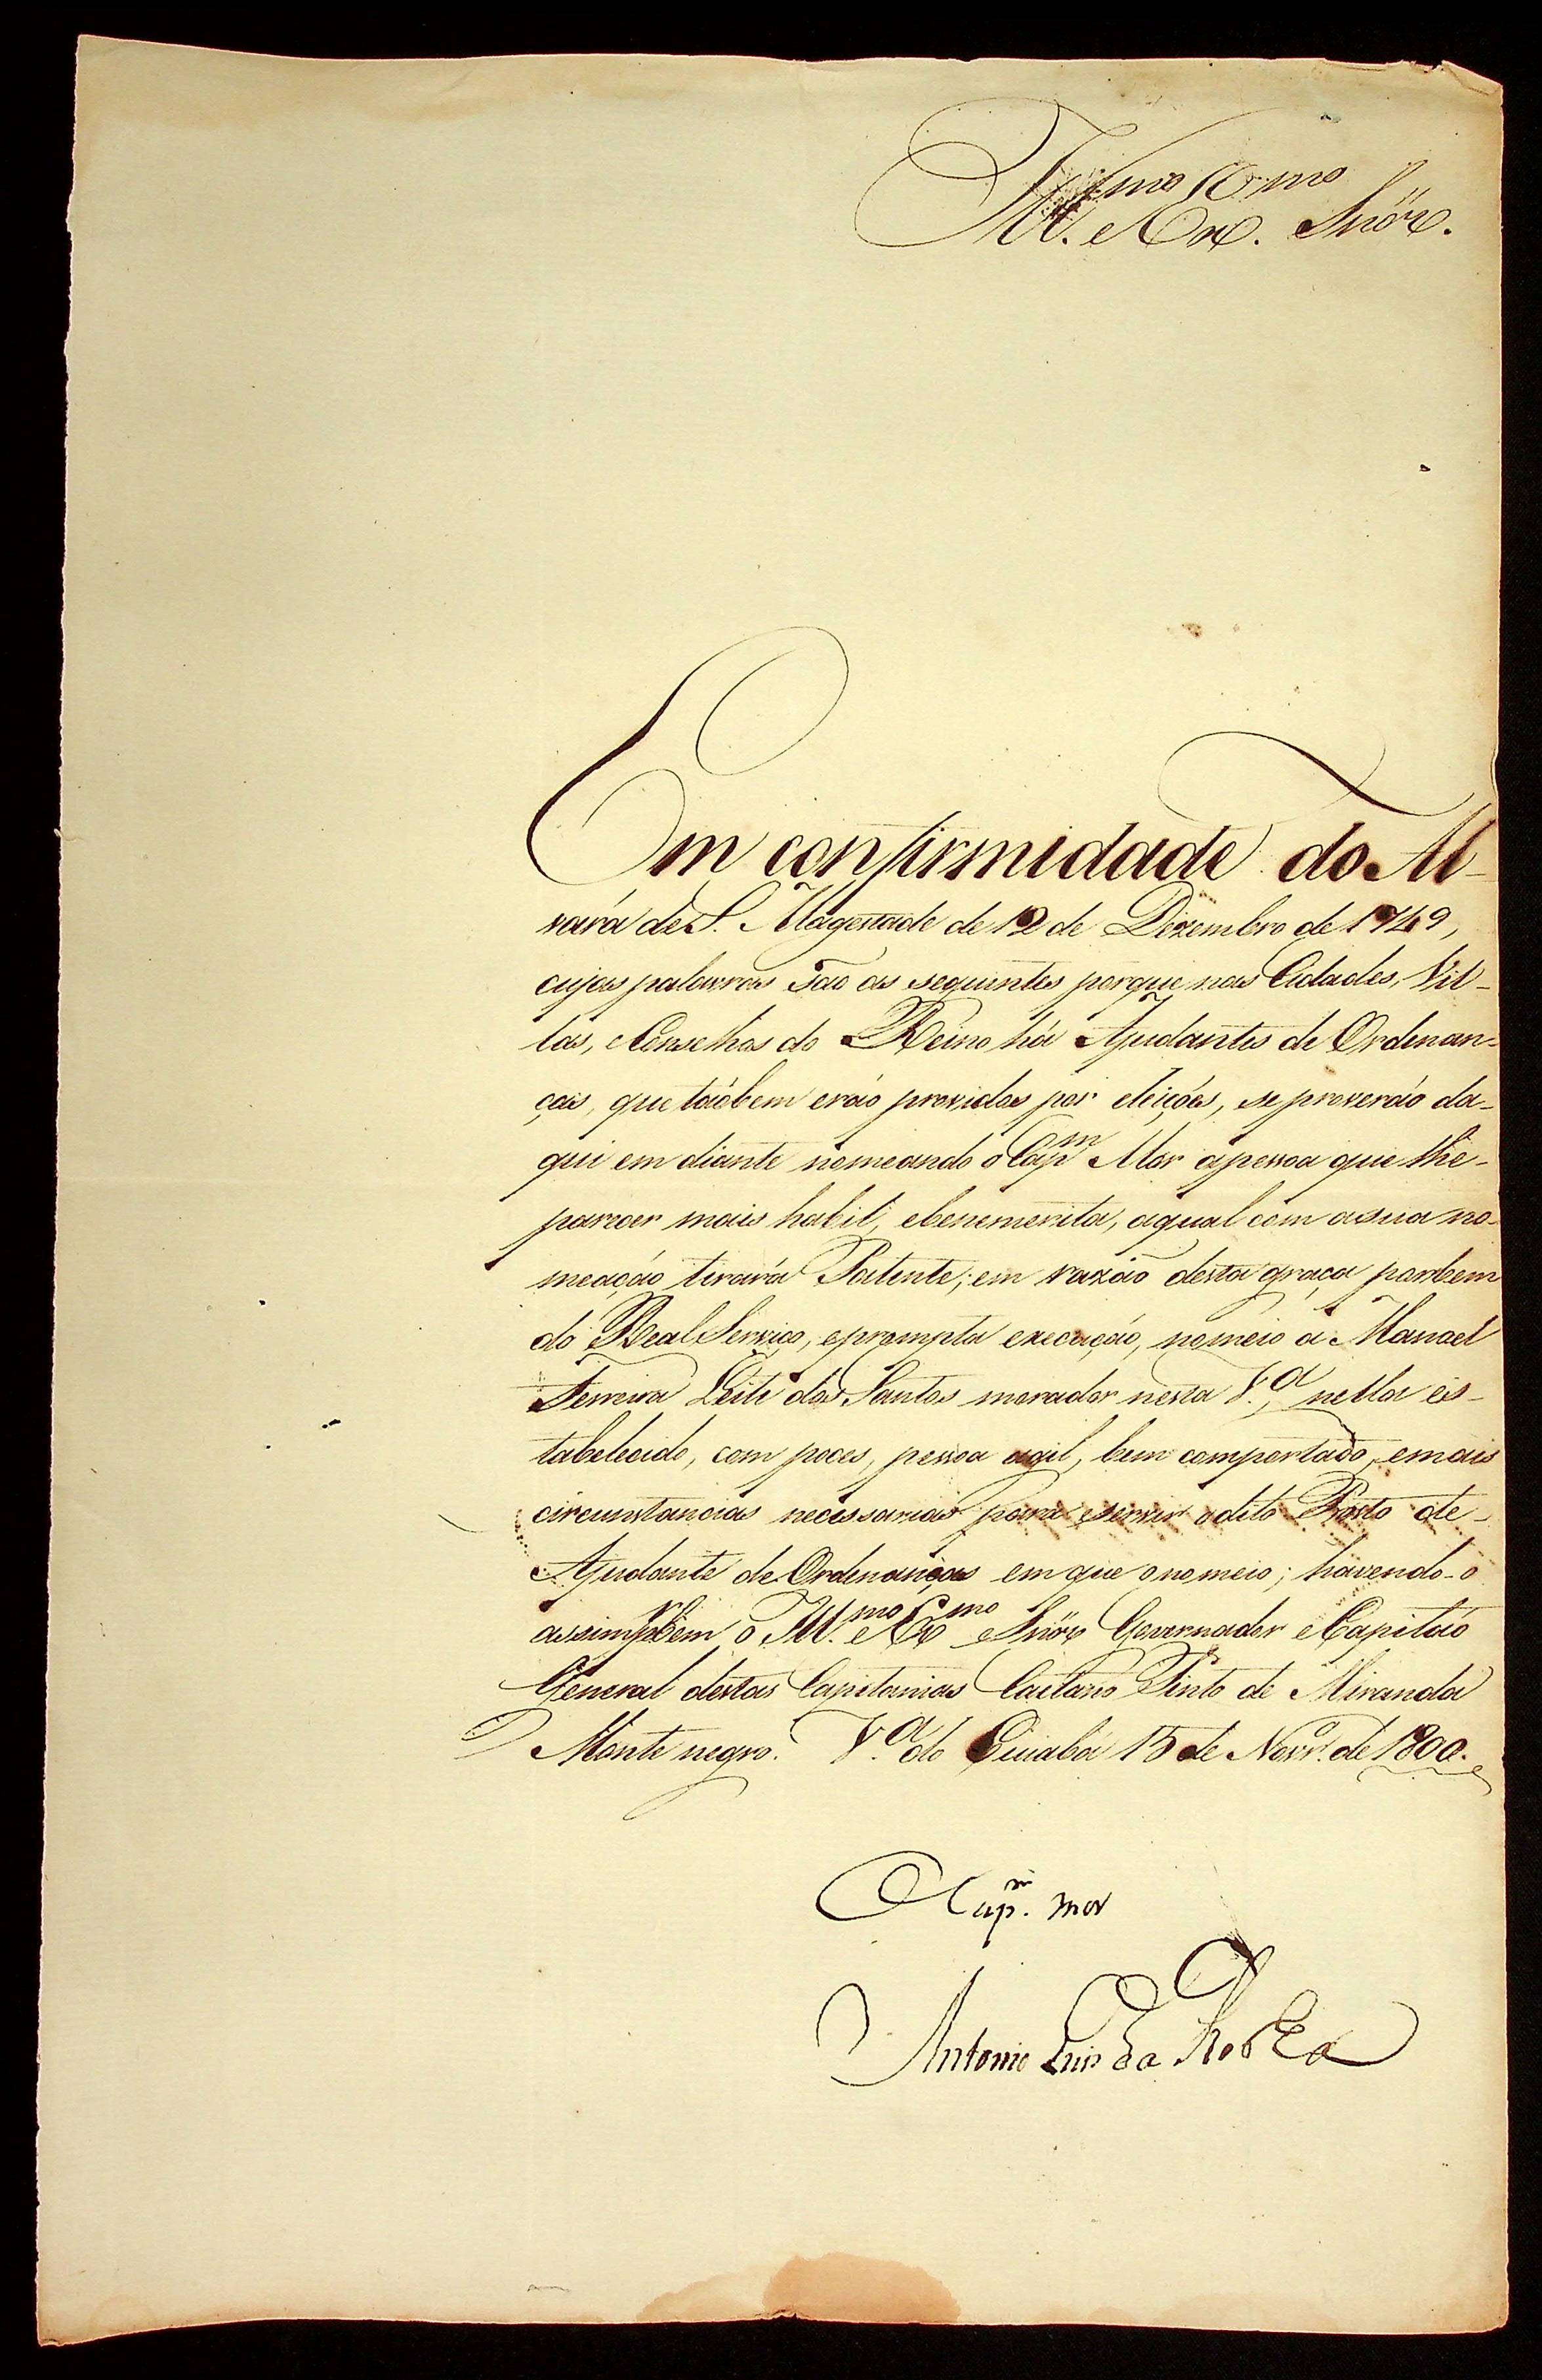 Ill.mo e Ex.mo Snör.
Em confirmidade do Al-
vará de S. Magestade de 12 de Dezembro de 1749,
cujas palavras são as seguintes porque nas Cidades, Vil-
las, e Conselhos do Reino há Ajudantes de Ordenan-
ças, que táobem eráo providos por eleiçóes, se proveráo da-
qui em diante nomeando o Cap.m Mor apessoa que lhe-
parecer mais habil, ebenemerita, aqual com asua no-
meaçáo tirará Patente; em razáo desta graça porbem
do Real Serviço, eprompta execuçáo, nomeio a Manoel
Ferreira Leite dos Santos morador nesta V.a, nella es-
tabelecido, com poces, pessoa agil, bem comportado, emais
circunstancias necessarias para servir odito Posto de-
Ajudante de Ordenanças em que onomeio; havendo-o
assim por bem o Ill.mo e Ex.mo Snör Governador e Capitáo
General destas Capitanias Caetano Pinto de Miranda
Monte negro. V.a do Cuiabá 15 de Novr.o de 1800.
O Cap.m mor
Antonio Luis da Rocha